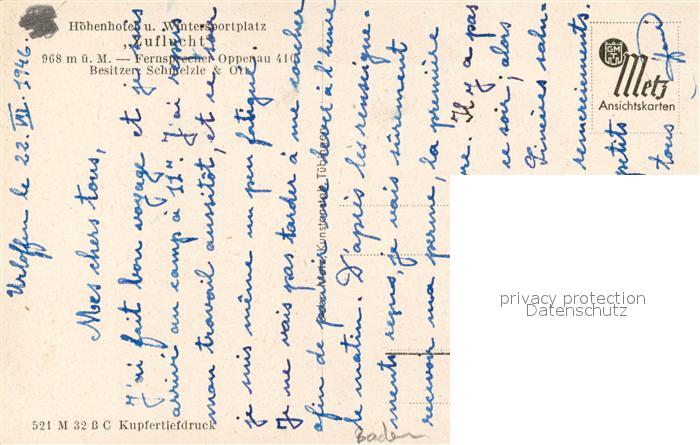 Höhenhofen u. Wintersportplatz
„Zuflucht"
968 m ü. M. — Fernsprecher Oppenau 410
Besitzer: Schmelzle & Ott
Metz
Ansichtskarten
Urloffen le 22. VII. 1946.
Mes chers tous,
J'ai fait bon voyage et je suis
arrivé au camp à 11". J'ai repris
mon travail aussitôt, et ce soir
je suis même un peu fatigué.
Je ne vais pas tarder à me coucher
afin de pouvoir me lever à l'heure
le matin. D'après les renseigne-
ments reçus, je vais sûrement
recevoir ma perme, la première
Il y a pas
ce soir ; alors
remerciements.
petits
tous
Kunstanstalt Tübingen
privacy protection
Datenschutz
521 M 32 B C Kupfertiefdruck
Baden